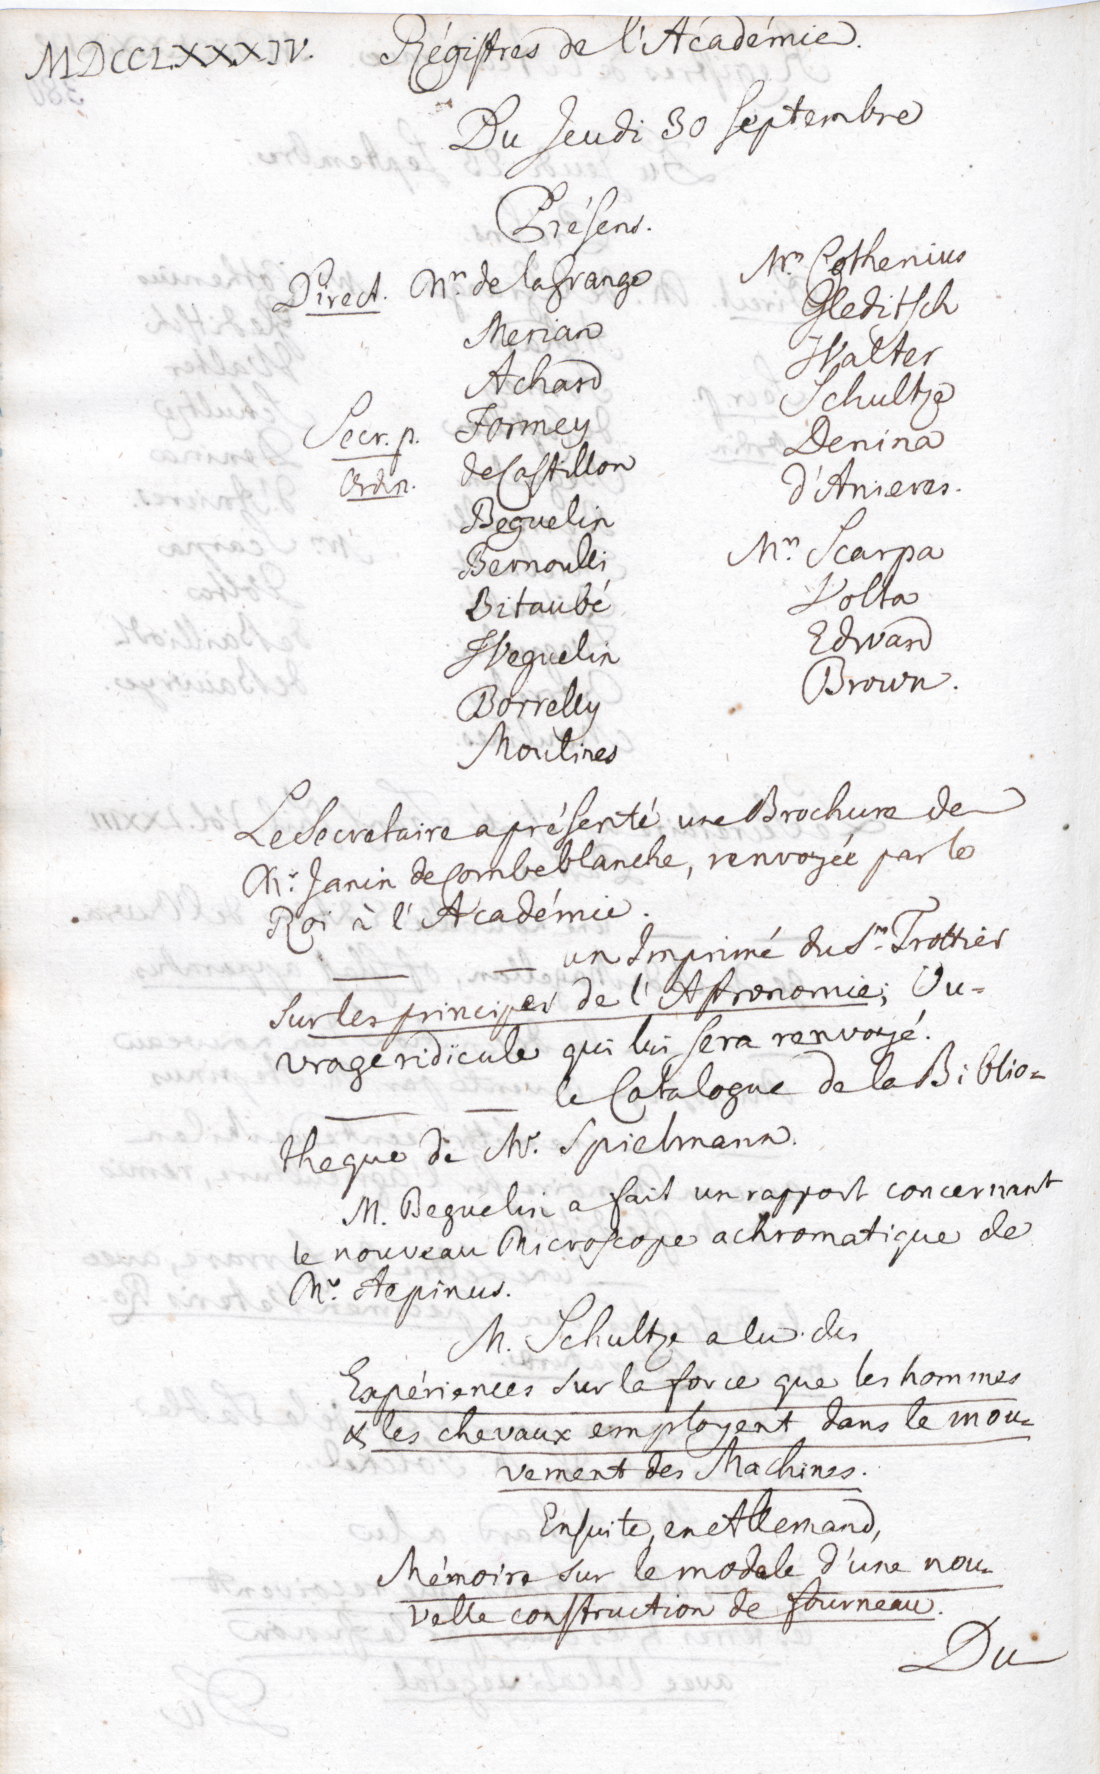 MDCCLXXXIV. Régistres de l'Académie.
Du Jeudi 30 Septembre
Présens.
Direct. Mrs. de la Grange
Merian
Achard
Secr. p. Formey
Ordin. de Castillon
Beguelin
Bernoulli
Bitaubé
Weguelin
Borrelly
Moulines
Mrs. Cothenius
Gleditsch
Walter
Schultze
Denina
d'Anieres.
Mrs. Scarpa
Volta
Edward
Brown.
Le Secretaire a présenté une Brochure de
Mr. Janin de Combeblanche, renvoyée par le
Roi à l'Académie.
— — un Imprimé du Sr. Trottier
sur les principes de l'Astronomie; Ou=
vrage ridicule qui lui sera renvoyé.
— — le Catalogue de la Biblio=
theque de Mr. Spielmann.
M. Beguelin a fait un rapport concernant
le nouveau Microscope achromatique de
Mr. Aepinus.
M. Schultze a lu des
Expériences sur la force que les hommes
& les chevaux employent dans le mou=
vement des Machines.
Ensuite, en Allemand,
Mémoire sur le modele d'une nou=
velle construction de fourneau.
Du